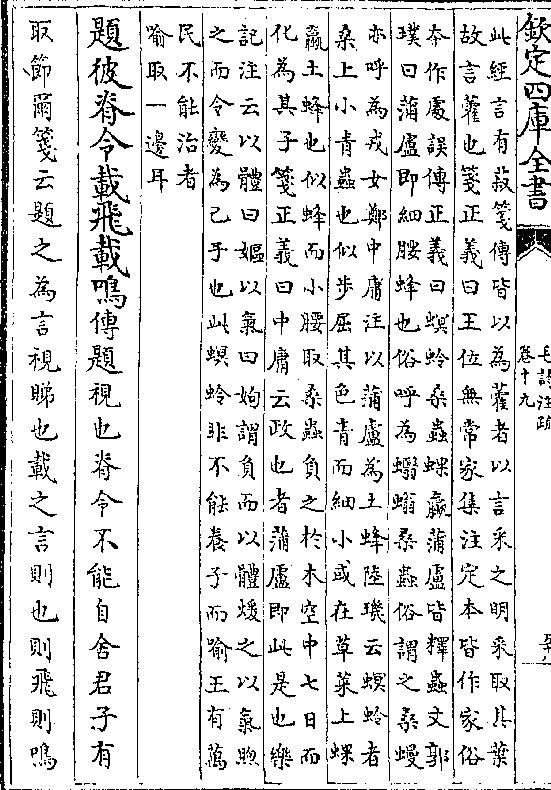 欽定四庫全書
毛詩注疏
卷十九
此經言有菽箋傳皆以為藿者以言采之明采取其葉
故言藿也箋正義曰王位無常家集注定本皆作家俗
本作處誤傳正義曰螟蛉桑蟲蜾蠃蒲盧皆釋蟲文郭
璞曰蒲盧即細腰蜂也俗呼為蠮螉桑蟲俗謂之桑蟃
亦呼為戎女鄭中庸注以蒲盧為土蜂陸璣云螟蛉者
桑上小青蟲也似步屈其色青而細小或在草菜上蜾
蠃土蜂也似蜂而小腰取桑蟲負之於木空中七日而
化為其子箋正義曰中庸云政也者蒲盧即此是也樂
記注云以體曰嫗以氣曰煦謂負而以體煖之以氣煦
之而令變為己子也此螟蛉非不能養子而喻王有萬
民不能治者
喻取一邊耳
題彼脊令載飛載鳴傳題視也脊令不能自舍君子有
取節爾箋云題之為言視睇也載之言則也則飛則鳴